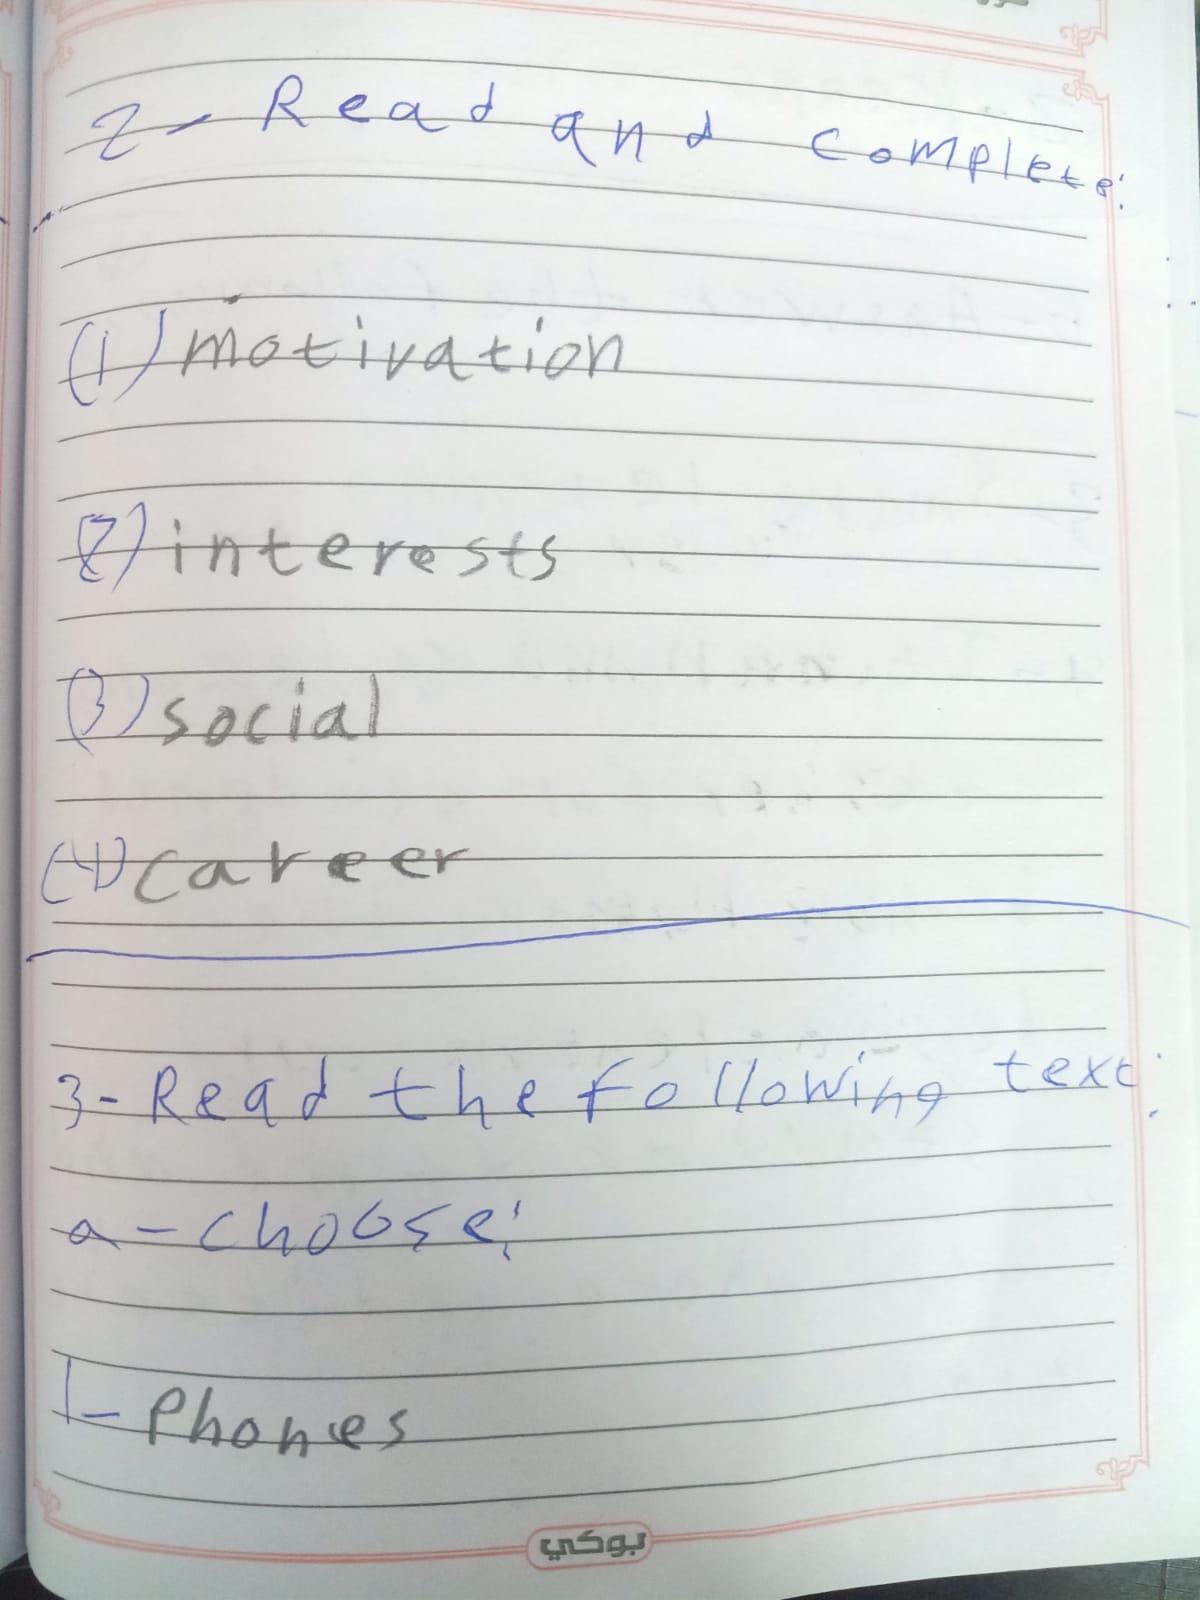 2- Read and complete:
(1) motivation
(2) interests
(3) social
(4) career
3- Read the following text:
a- choose:
1- Phones
بوكي